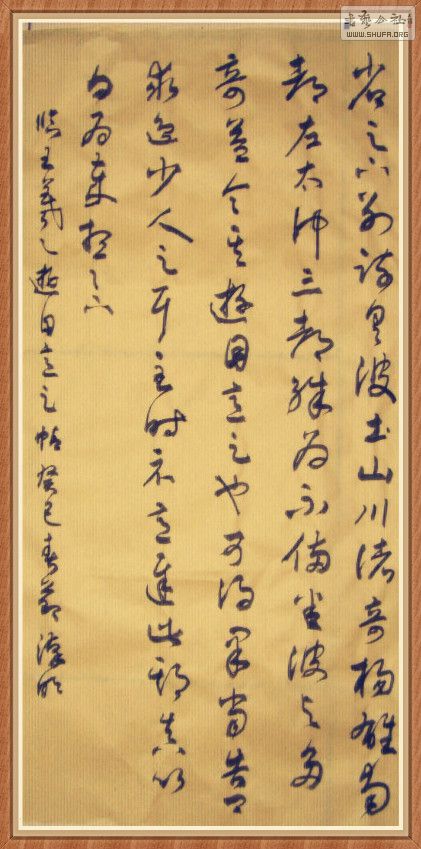 書藝公社
WWW.SHUFA.ORG
省足下別疏具彼土山川諸奇揚雄蜀
都左太沖三都殊為不備悉彼故多
奇益令其遊目意足也可得果當告卿
求迎少人足耳至時示意遲此期真以
日為歲想足下
臨王羲之遊目意足帖癸巳春節